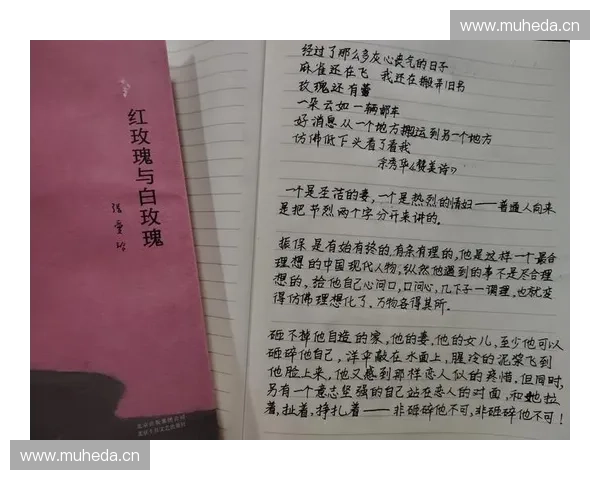 www.muheda.cn
红玫瑰与白玫瑰
张爱玲
经过了那么多灰心丧气的日子
麻雀还在飞 我还在搬弄旧书
玫瑰还有蕾
一朵云如一辆邮车
好消息从一个地方搬运到另一个地方
仿佛低下头看了看我
余秀华《赞美诗》
一个是圣洁的妻,一个是热烈的情妇——普通人向来
是把节烈两个字分开来讲的。
振保是有始有终的,有条有理的,他是这样一个最合
理想的中国现代人物,纵然他遇到的事不是尽合理
想的,给他自己心问口,口问心,几下子一调理,也就变
得仿佛理想化了,万物各得其所。
砸不掉他自造的家,他的妻,他的女儿,至少他可以
砸碎他自己,洋伞敲在水面上,腥冷的泥浆飞到
他脸上来,他又感到那样恋人似的疼惜,但同时,
另有一个意志坚强的自己站在恋人的对面,和她拉
着,扯着,挣扎着——非砸碎他不可,非砸碎他不可!
www.muheda.cn
www.muheda.cn